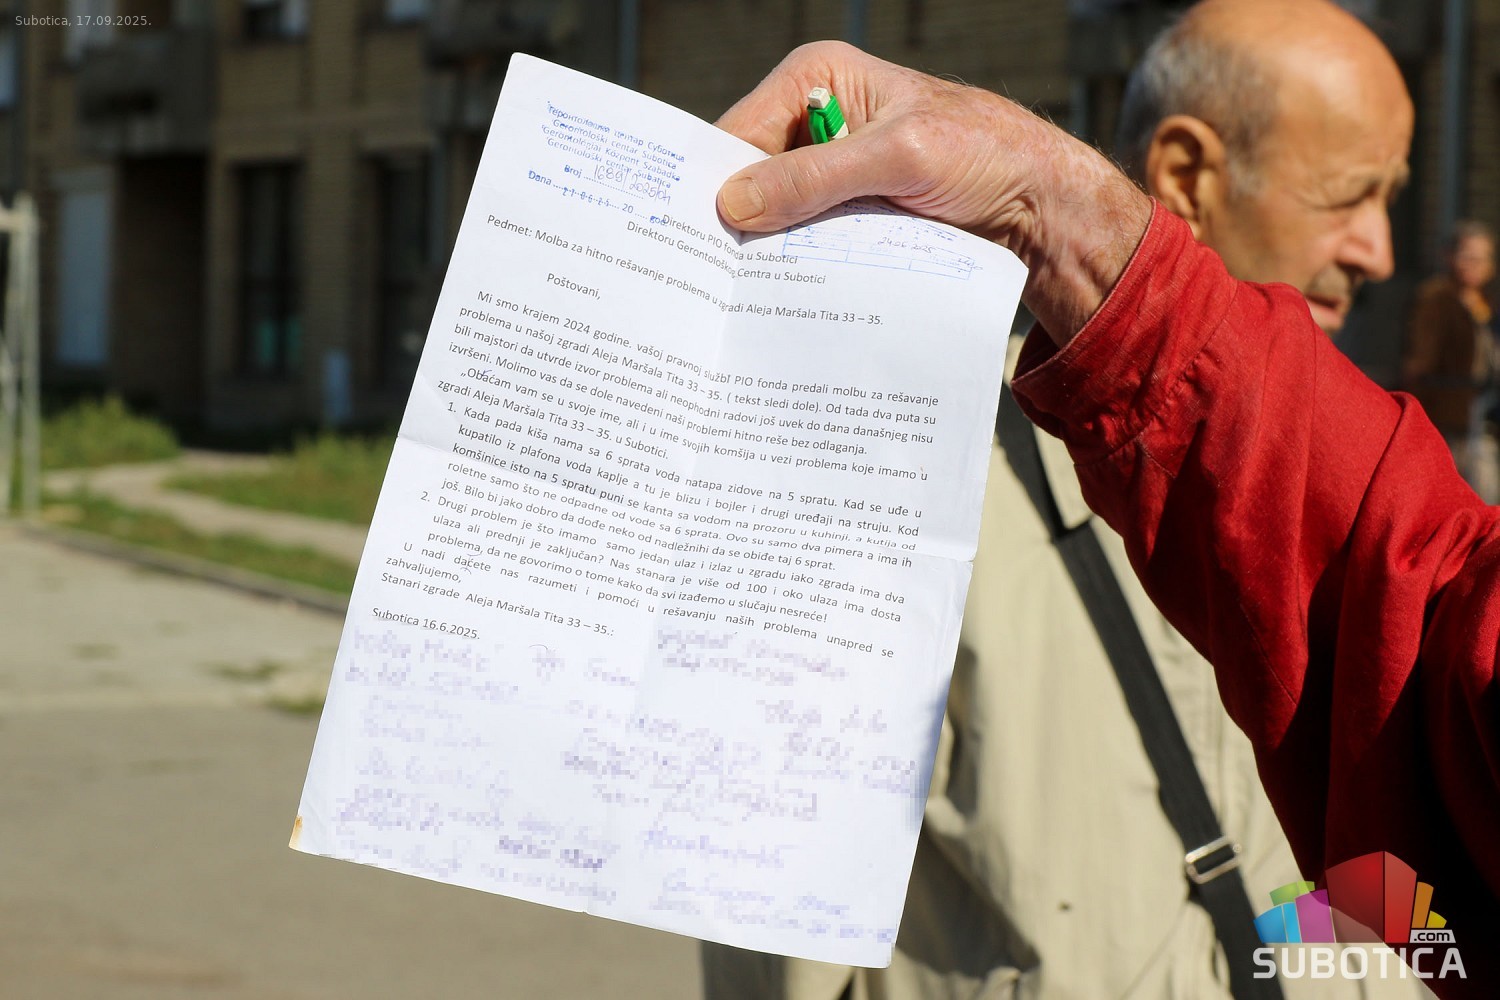 Subotica, 17.09.2025.
Геронтолошки центар Суботица
Gerontološki centar Subotica
Gerontológiai Központ Szabadka
Gerontološki centar Subatica
Broj
Dana 20 god.
Direktoru PIO fonda u Subotici
Direktoru Gerontološkog Centra u Subotici
Pedmet: Molba za hitno rešavanje problema u zgradi Aleja Maršala Tita 33 – 35.
Poštovani,
Mi smo krajem 2024 godine. vašoj pravnoj službI PIO fonda predali molbu za rešavanje
problema u našoj zgradi Aleja Maršala Tita 33 - 35. ( tekst sledi dole). Od tada dva puta su
bili majstori da utvrde izvor problema ali neophodni radovi još uvek do dana današnjeg nisu
izvršeni. Molimo vas da se dole navedeni naši problemi hitno reše bez odlaganja.
„Obaćam vam se u svoje ime, ali i u ime svojih komšija u vezi problema koje imamo u
zgradi Aleja Maršala Tita 33 – 35. u Subotici.
1. Kada pada kiša nama sa 6 sprata voda natapa zidove na 5 spratu. Kad se uđe u
kupatilo iz plafona voda kaplje a tu je blizu i bojler i drugi uređaji na struju. Kod
komšinice isto na 5 spratu puni se kanta sa vodom na prozoru u kuhinji, a kutija od
roletne samo što ne odpadne od vode sa 6 sprata. Ovo su samo dva pimera a ima ih
još. Bilo bi jako dobro da dođe neko od nadležnihi da se obiđe taj 6 sprat.
2. Drugi problem je što imamo samo jedan ulaz i izlaz u zgradu iako zgrada ima dva
ulaza ali prednji je zaključan? Nas stanara je više od 100 i oko ulaza ima dosta
problema, da ne govorimo o tome kako da svi izađemo u slučaju nesreće!
U nadi daćete nas razumeti i pomoći u rešavanju naših problema unapred se
zahvaljujemo,
Stanari zgrade Aleja Maršala Tita 33 – 35.:
Subotica 16.6.2025.
.com
SUBOTICA